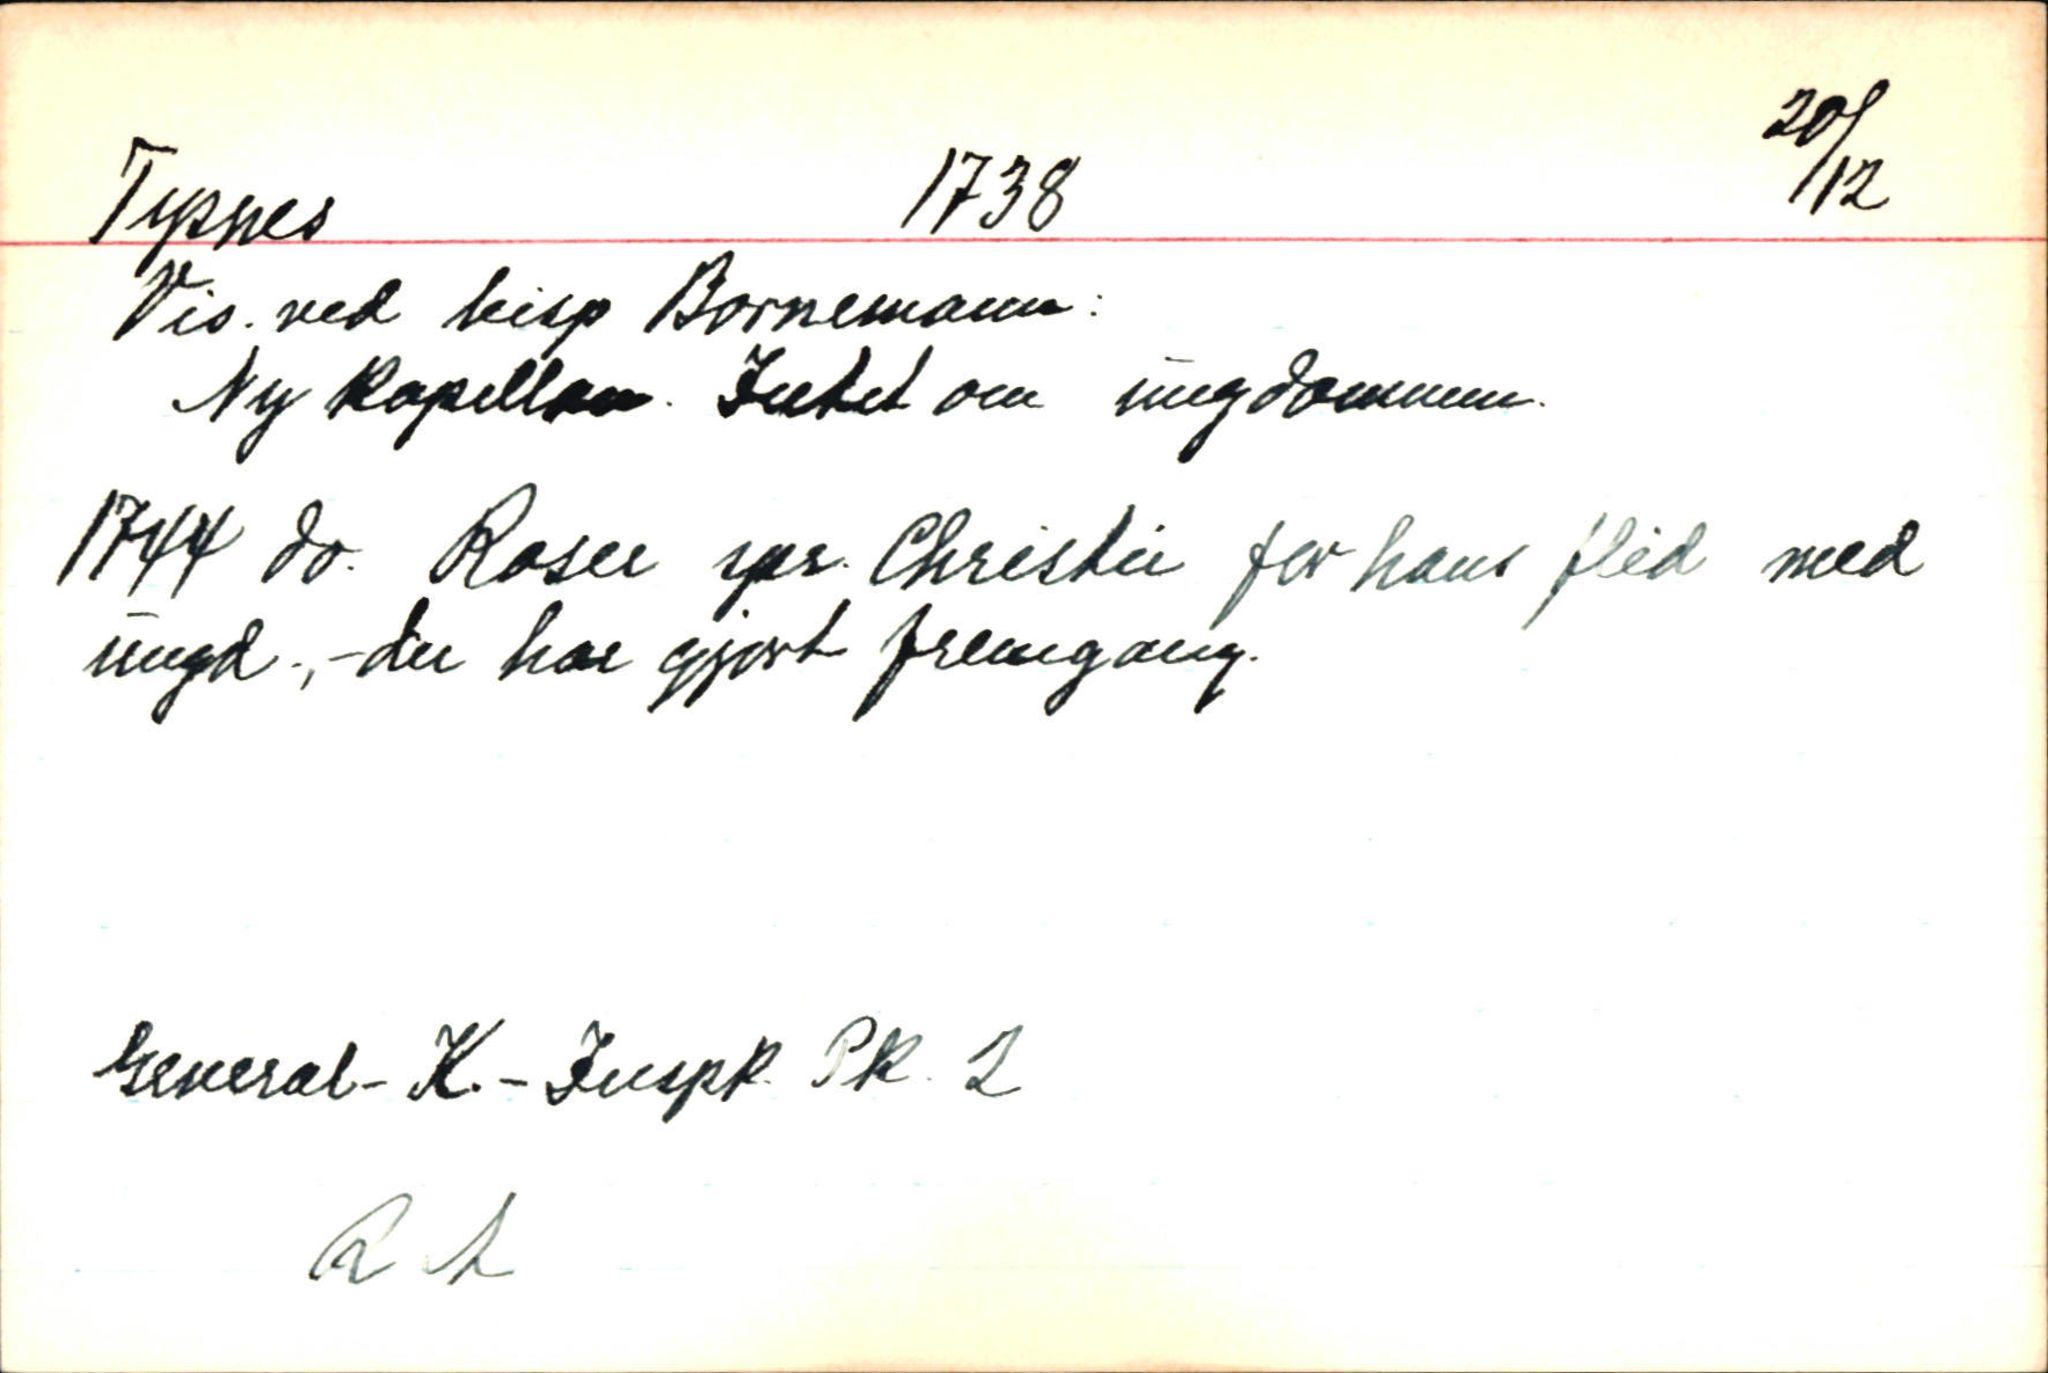 Tysnes 1738 20/12
Vis. ved bisp Bornemann:
Ny kapellan. Intet om ungdommen.
1744 do. Roser spr. Christie for hans flid med
ungd., - den har gjort fremgang.
General-K.-Inspk. Pk. 2
R A